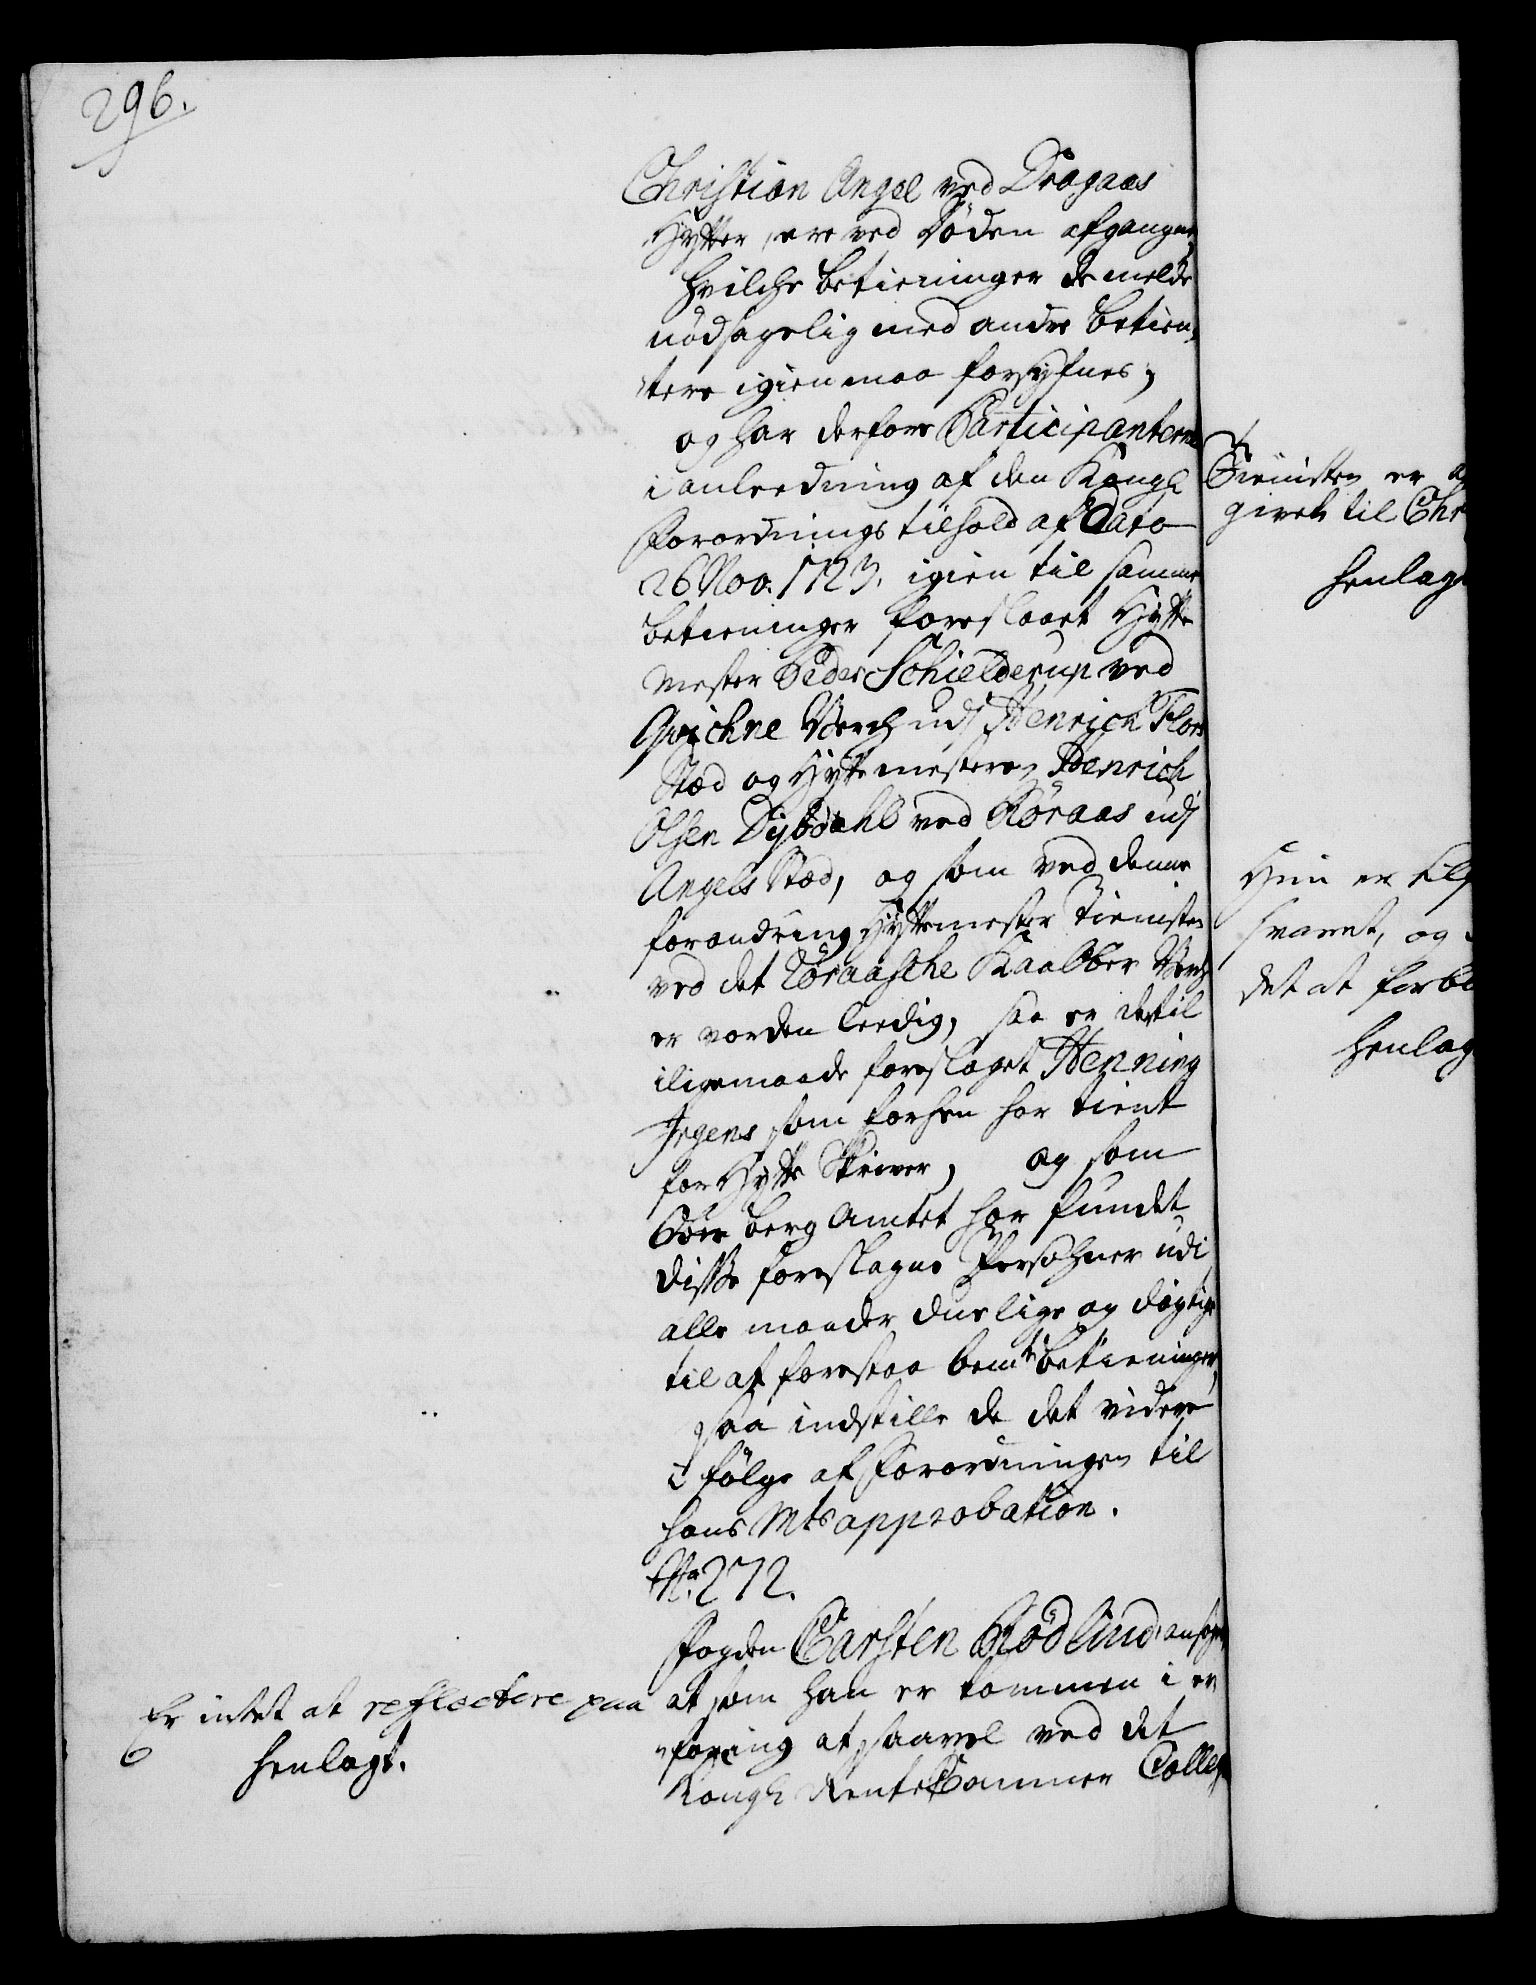 296.
Christian Angel ved Dragaas
Hytter, ere ved Døden afgangne,
hvilche betieninger de melde
nødsagelig med andre betien-
tere igien maa forsyfnes;
og har derfore Participanterne
i anleedning af den Kongl
Forordnings tilhold af Dato
26 Nov. 1723. igien til samme
betieninger foreslaaet Hytte
Mester Peder Schielderup ved
Qvichne Verch udj Henrich Flors
Stæd og Hyttemesteren Henrich
Olsen Dybdahl ved Røraas udj
Angels Stæd, og som ved denne
forandring Hyttemester Tienisten
ved det Røraasche Kaabber Verch
er vorden leedig, saa er dertil
iligemaade foreslaget Henning
Irgens som forhen har tient
for Hytte Skriver, og som
Ober berg Amtet har fundet
disse foreslagne Persohner udi
alle maader duelige og dygtige
til at forestaa bemte betieninger,
saa indstille de det videre
i følge af Forordningen til
hans Mts approbation.
No. 272.
Fogden Carsten Rødlund, ansøger
at som han er kommen i er-
faring at saavel ved det
Kongl RenteKammer Colleg
Er intet at reflectere paa
henlagt.
Tienisten er
givet til Chr
henlag
Hun er
svaret, og
det at forbl
henlag